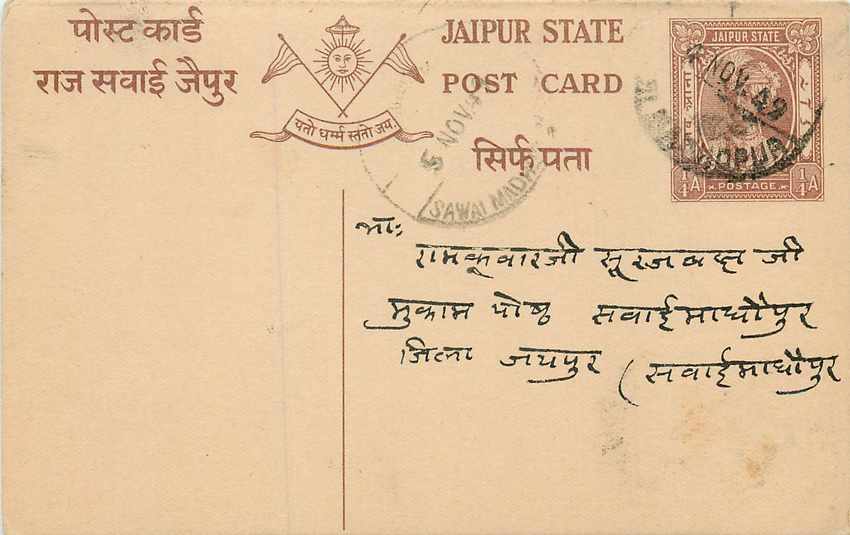 पोस्ट कार्ड
राज सवाई जैपुर
यतो धर्म्म स्ततो जय.
JAIPUR STATE
POST CARD
सिर्फ पता
JAIPUR STATE
पाव आना
1/4 A POSTAGE 1/4 A
4 NOV. 49
5 NOV 4
SAWAI MADH
भा:
रामकूवारजी सूरजबक्ष जी
मुकाम पोष्ठ सवाईमाधौपुर
जिला जयपुर (सवाईमाधौपुर